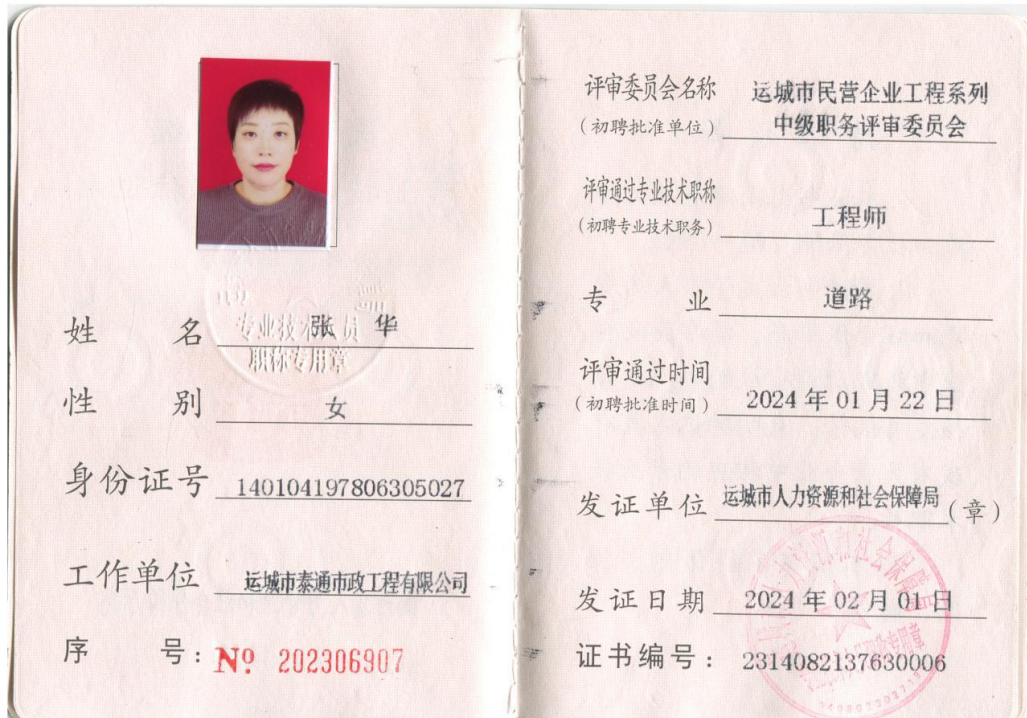 姓 名 张 华
专业技术人员
职称专用章
性 别 女
身份证号 140104197806305027
工作单位 运城市泰通市政工程有限公司
序 号: № 202306907
评审委员会名称 运城市民营企业工程系列
(初聘批准单位) 中级职务评审委员会
评审通过专业技术职称
(初聘专业技术职务) 工程师
专 业 道路
评审通过时间
(初聘批准时间) 2024 年 01 月 22 日
发证单位 运城市人力资源和社会保障局 (章)
发证日期 2024 年 02 月 01 日
证书编号: 2314082137630006